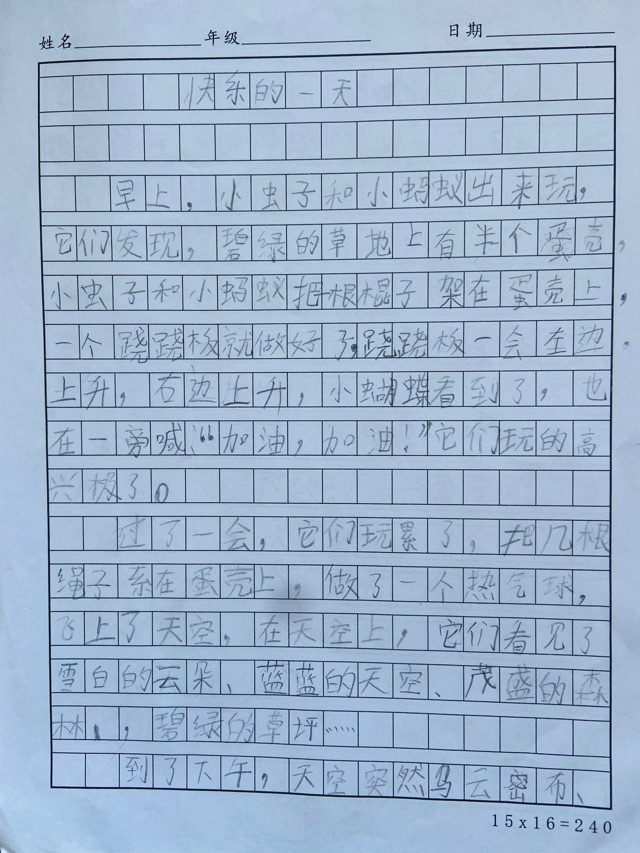 姓名 年级 日期
快乐的一天
早上，小虫子和小蚂蚁出来玩，
它们发现，碧绿的草地上有半个蛋壳，
小虫子和小蚂蚁把根棍子架在蛋壳上，
一个跷跷板就做好了，跷跷板一会左边，
上升，右边上升，小蝴蝶看到了，也
在一旁喊：“加油，加油！”它们玩的高
兴极了。
过了一会，它们玩累了，把几根
绳子系在蛋壳上，做了一个热气球，
飞上了天空，在天空上，它们看见了
雪白的云朵、蓝蓝的天空、茂盛的森
林、，碧绿的草坪……
到了下午，天空突然乌云密布、
15x16=240